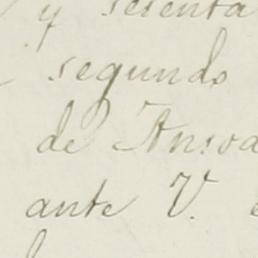 y sesenta
segundo
de Ansoa
ante V.